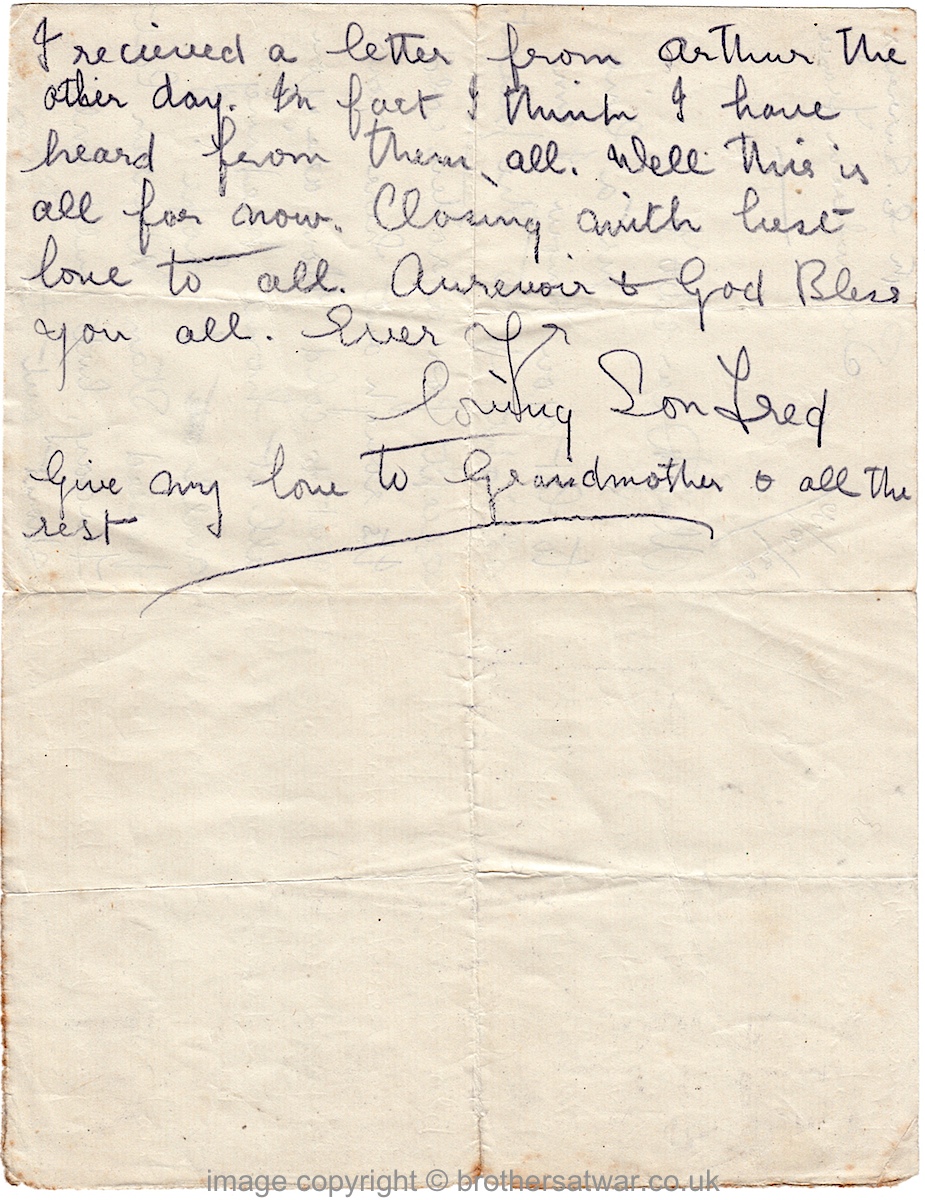 I recieved a letter from Arthur the
other day. In fact I think I have
heard from them all. Well this is
all for now. Closing with best
love to all. Aurevoir & God Bless
you all. Ever Yr
loving Son Fred
Give my love to Grandmother & all the
rest
image copyright © brothersatwar.co.uk